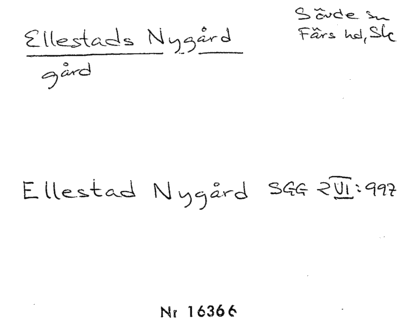 Ellestads Nygård
gård
Sövde sn
Färs hd, Sk
Ellestad Nygård SGG 2 VI: 997
Nr 16366